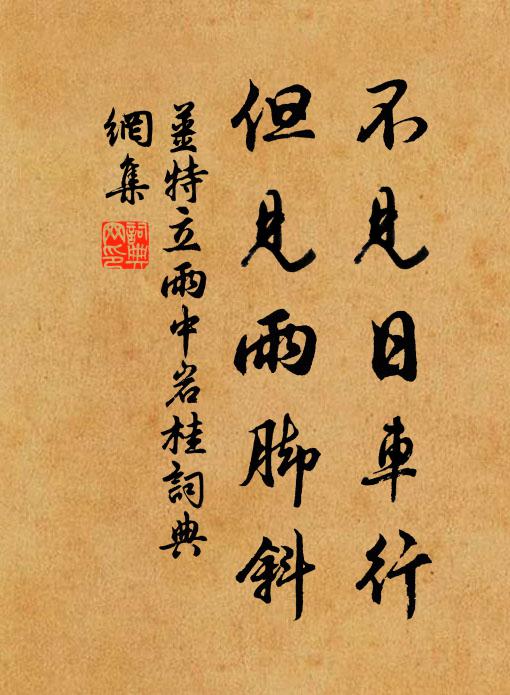 不見日車行
但見雨脚斜
姜特立雨中岩桂詞典
網集
詞典
网印